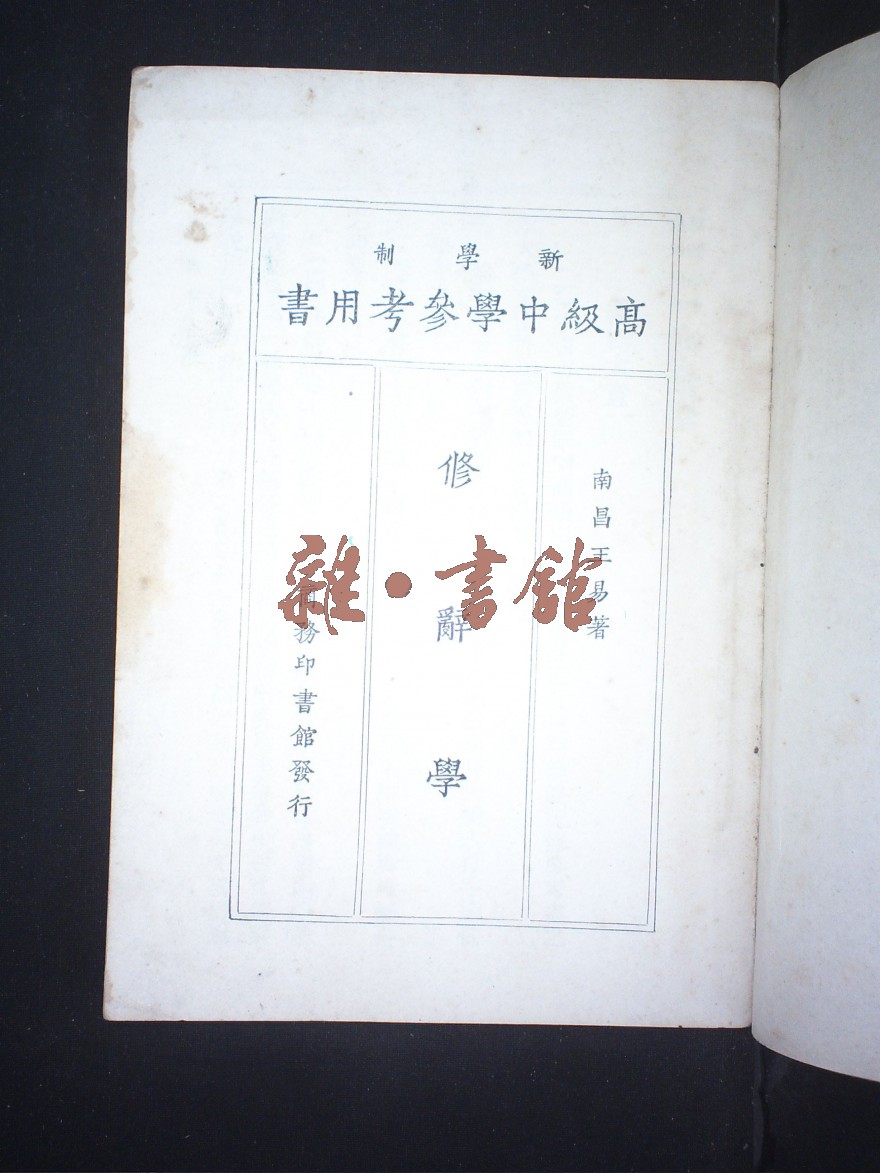 新學制
高級中學參考用書
南昌王易著
修辭學
商務印書館發行
雜·書館